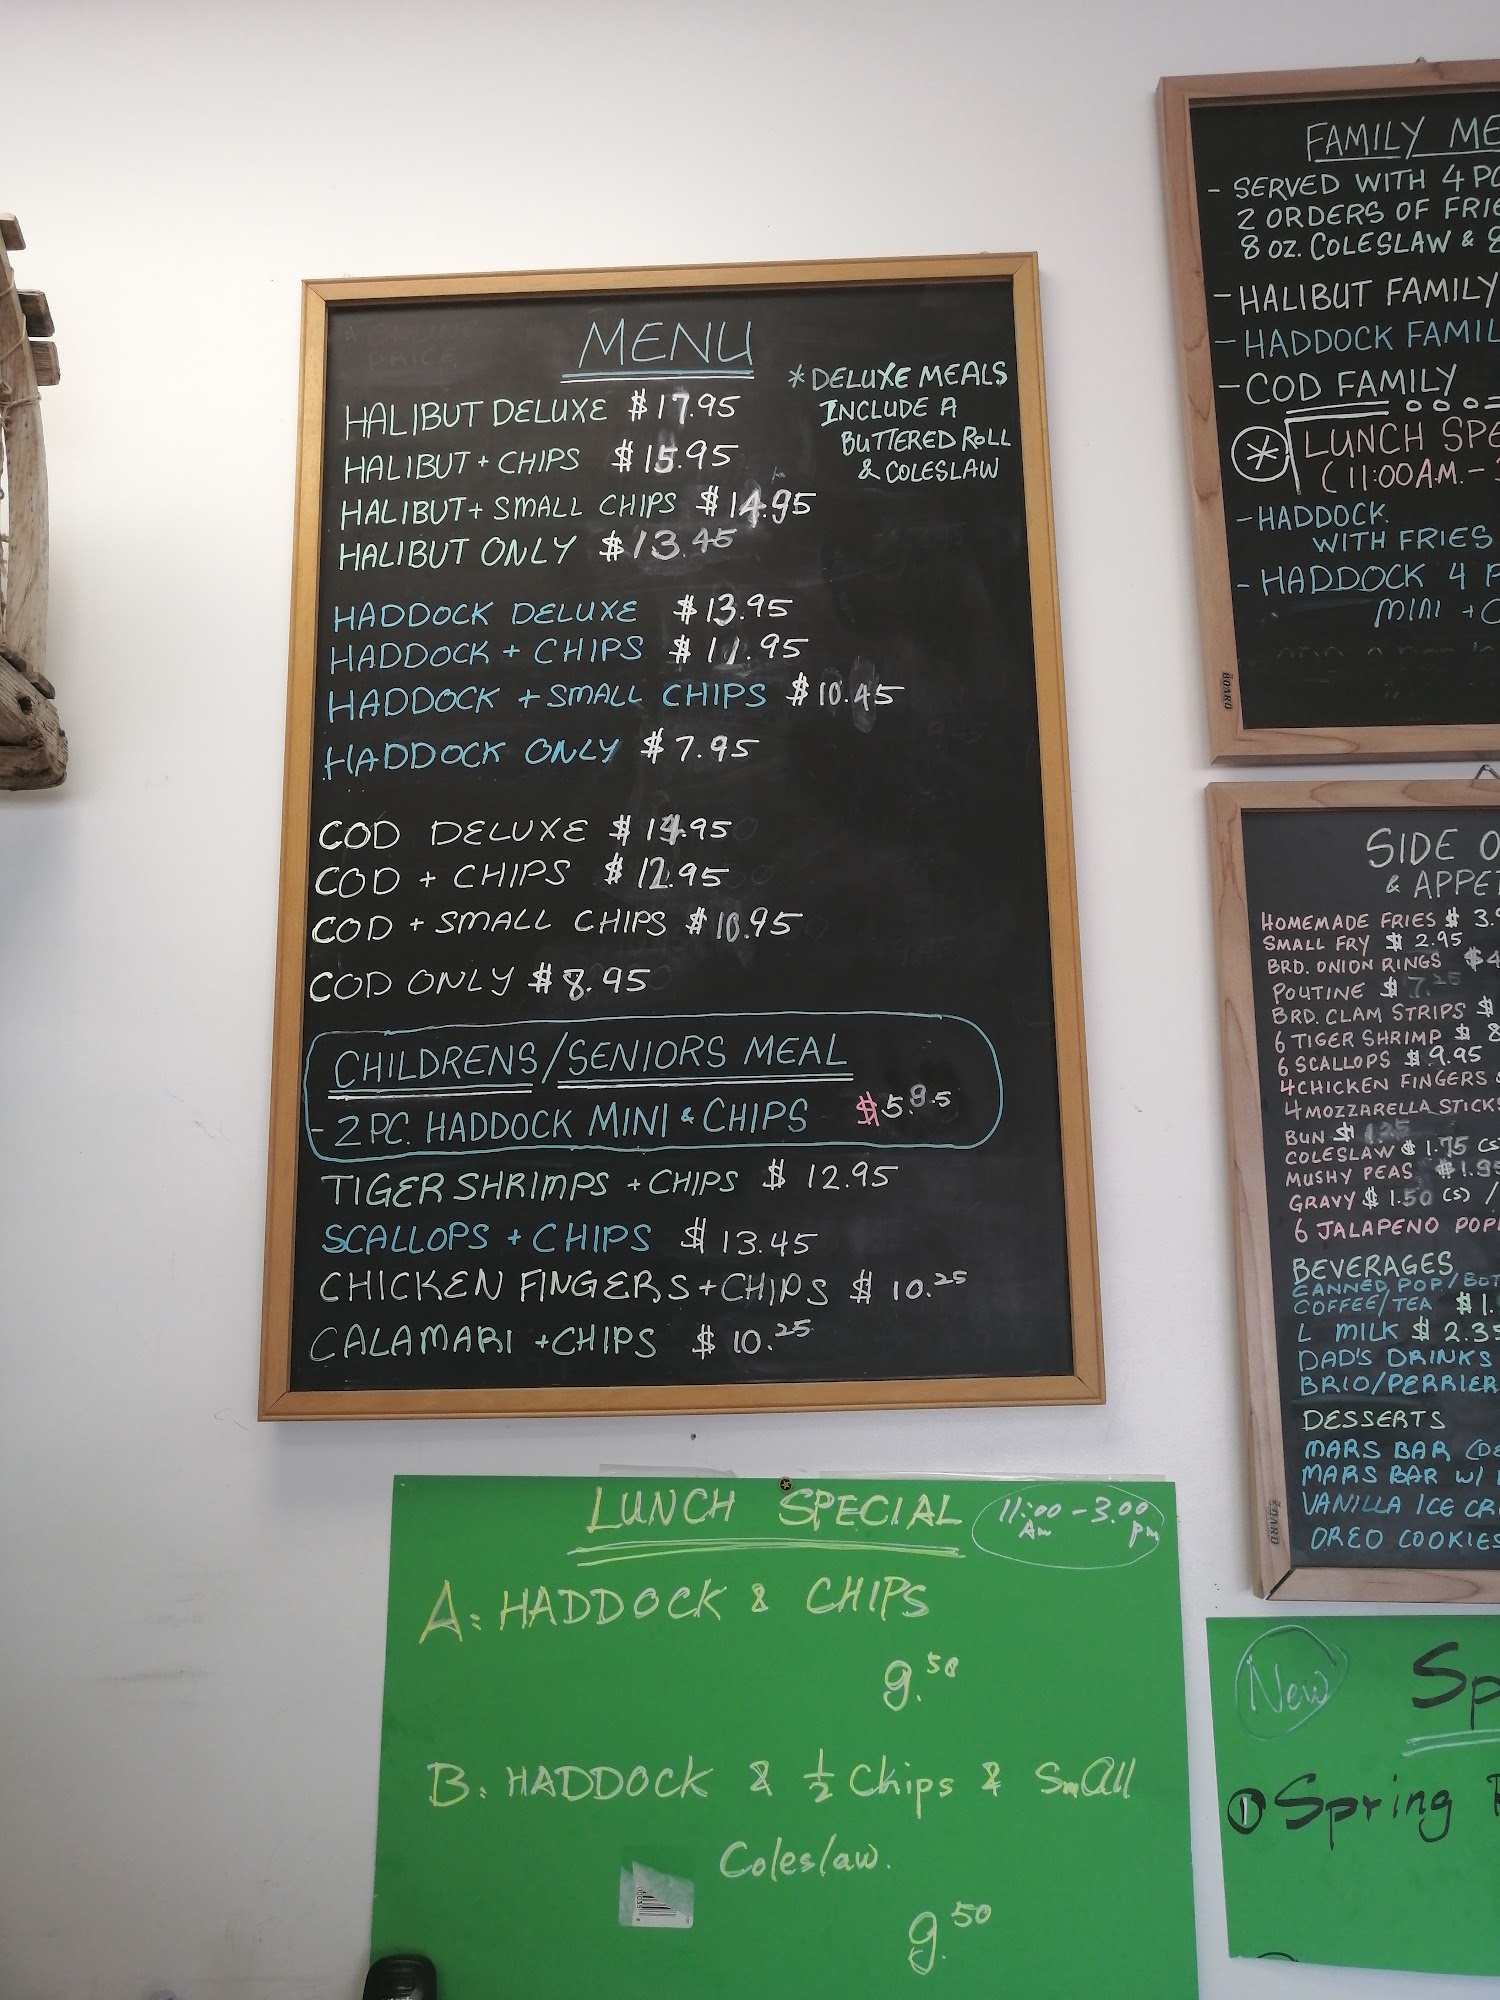 MENU
* DELUXE MEALS
INCLUDE A
BUTTERED ROLL
& COLESLAW
HALIBUT DELUXE $17.95
HALIBUT + CHIPS $15.95
HALIBUT + SMALL CHIPS $14.95
HALIBUT ONLY $13.45
HADDOCK DELUXE $13.95
HADDOCK + CHIPS $11.95
HADDOCK + SMALL CHIPS $10.45
HADDOCK ONLY $7.95
COD DELUXE $14.95
COD + CHIPS $12.95
COD + SMALL CHIPS $10.95
COD ONLY $8.95
CHILDRENS/SENIORS MEAL
- 2 PC. HADDOCK MINI & CHIPS $5.95
TIGER SHRIMPS + CHIPS $12.95
SCALLOPS + CHIPS $13.45
CHICKEN FINGERS + CHIPS $10.25
CALAMARI + CHIPS $10.25
LUNCH SPECIAL 11:00 AM - 3.00 pm
A: HADDOCK & CHIPS
9.50
B: HADDOCK & ½ Chips & Small
Coleslaw.
9.50
FAMILY ME
- SERVED WITH 4 PC
2 ORDERS OF FRIE
8 OZ. COLESLAW &
- HALIBUT FAMILY
- HADDOCK FAMIL
- COD FAMILY
* LUNCH SPE
(11:00AM. -
- HADDOCK
WITH FRIES
- HADDOCK 4 P
MINI +
BOARD
SIDE O
& APPET
HOMEMADE FRIES $ 3.9
SMALL FRY $ 2.95
BRD. ONION RINGS $4
POUTINE $ 7.25
BRD. CLAM STRIPS $
6 TIGER SHRIMP $ 8
6 SCALLOPS $9.95
4 CHICKEN FINGERS
4 MOZZARELLA STICKS
BUN $ 1.25
COLESLAW $ 1.75 (S)
MUSHY PEAS $1.95
GRAVY $ 1.50 (S) /
6 JALAPENO POP
BEVERAGES
CANNED POP/BOT
COFFEE/TEA $1.
MILK $ 2.35
DAD'S DRINKS
BRIO/PERRIER
DESSERTS
MARS BAR (DE
MARS BAR W/
VANILLA ICE CR
OREO COOKIES
BOARD
New Sp
① Spring